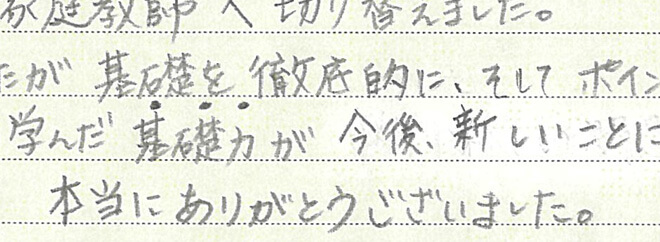 家庭教師へ切り替えました。
たが基礎を徹底的に、そしてポイン
学んだ基礎力が今後、新しいことに
本当にありがとうございました。